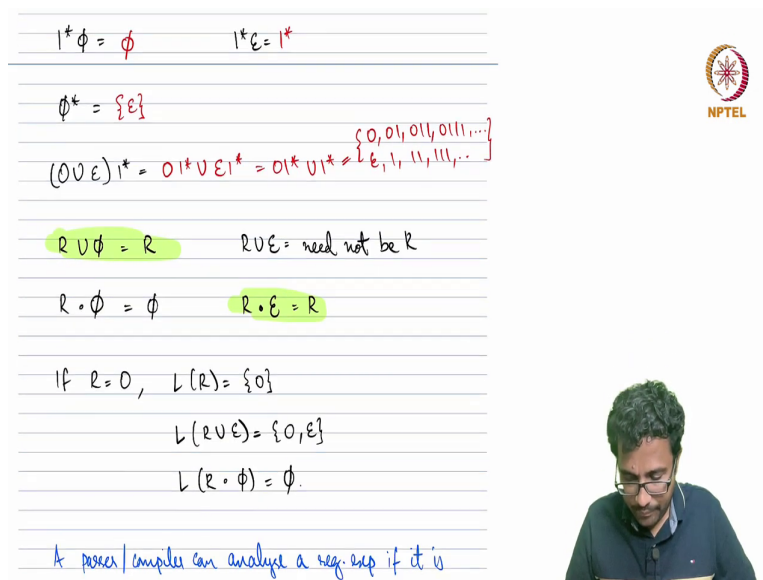 1*ϕ = ϕ 1*ε = 1*
NPTEL
ϕ* = {ε}
(0∪ε)1* = 01*∪ε1* = 01*∪1* = {0, 01, 011, 0111, ...
ε, 1, 11, 111, ..}
R∪ϕ = R R∪ε = need not be R
R·ϕ = ϕ R·ε = R
If R=0, L(R) = {0}
L(R∪ε) = {0,ε}
L(R·ϕ) = ϕ.
A parser/compiler can analyse a reg.exp if it is